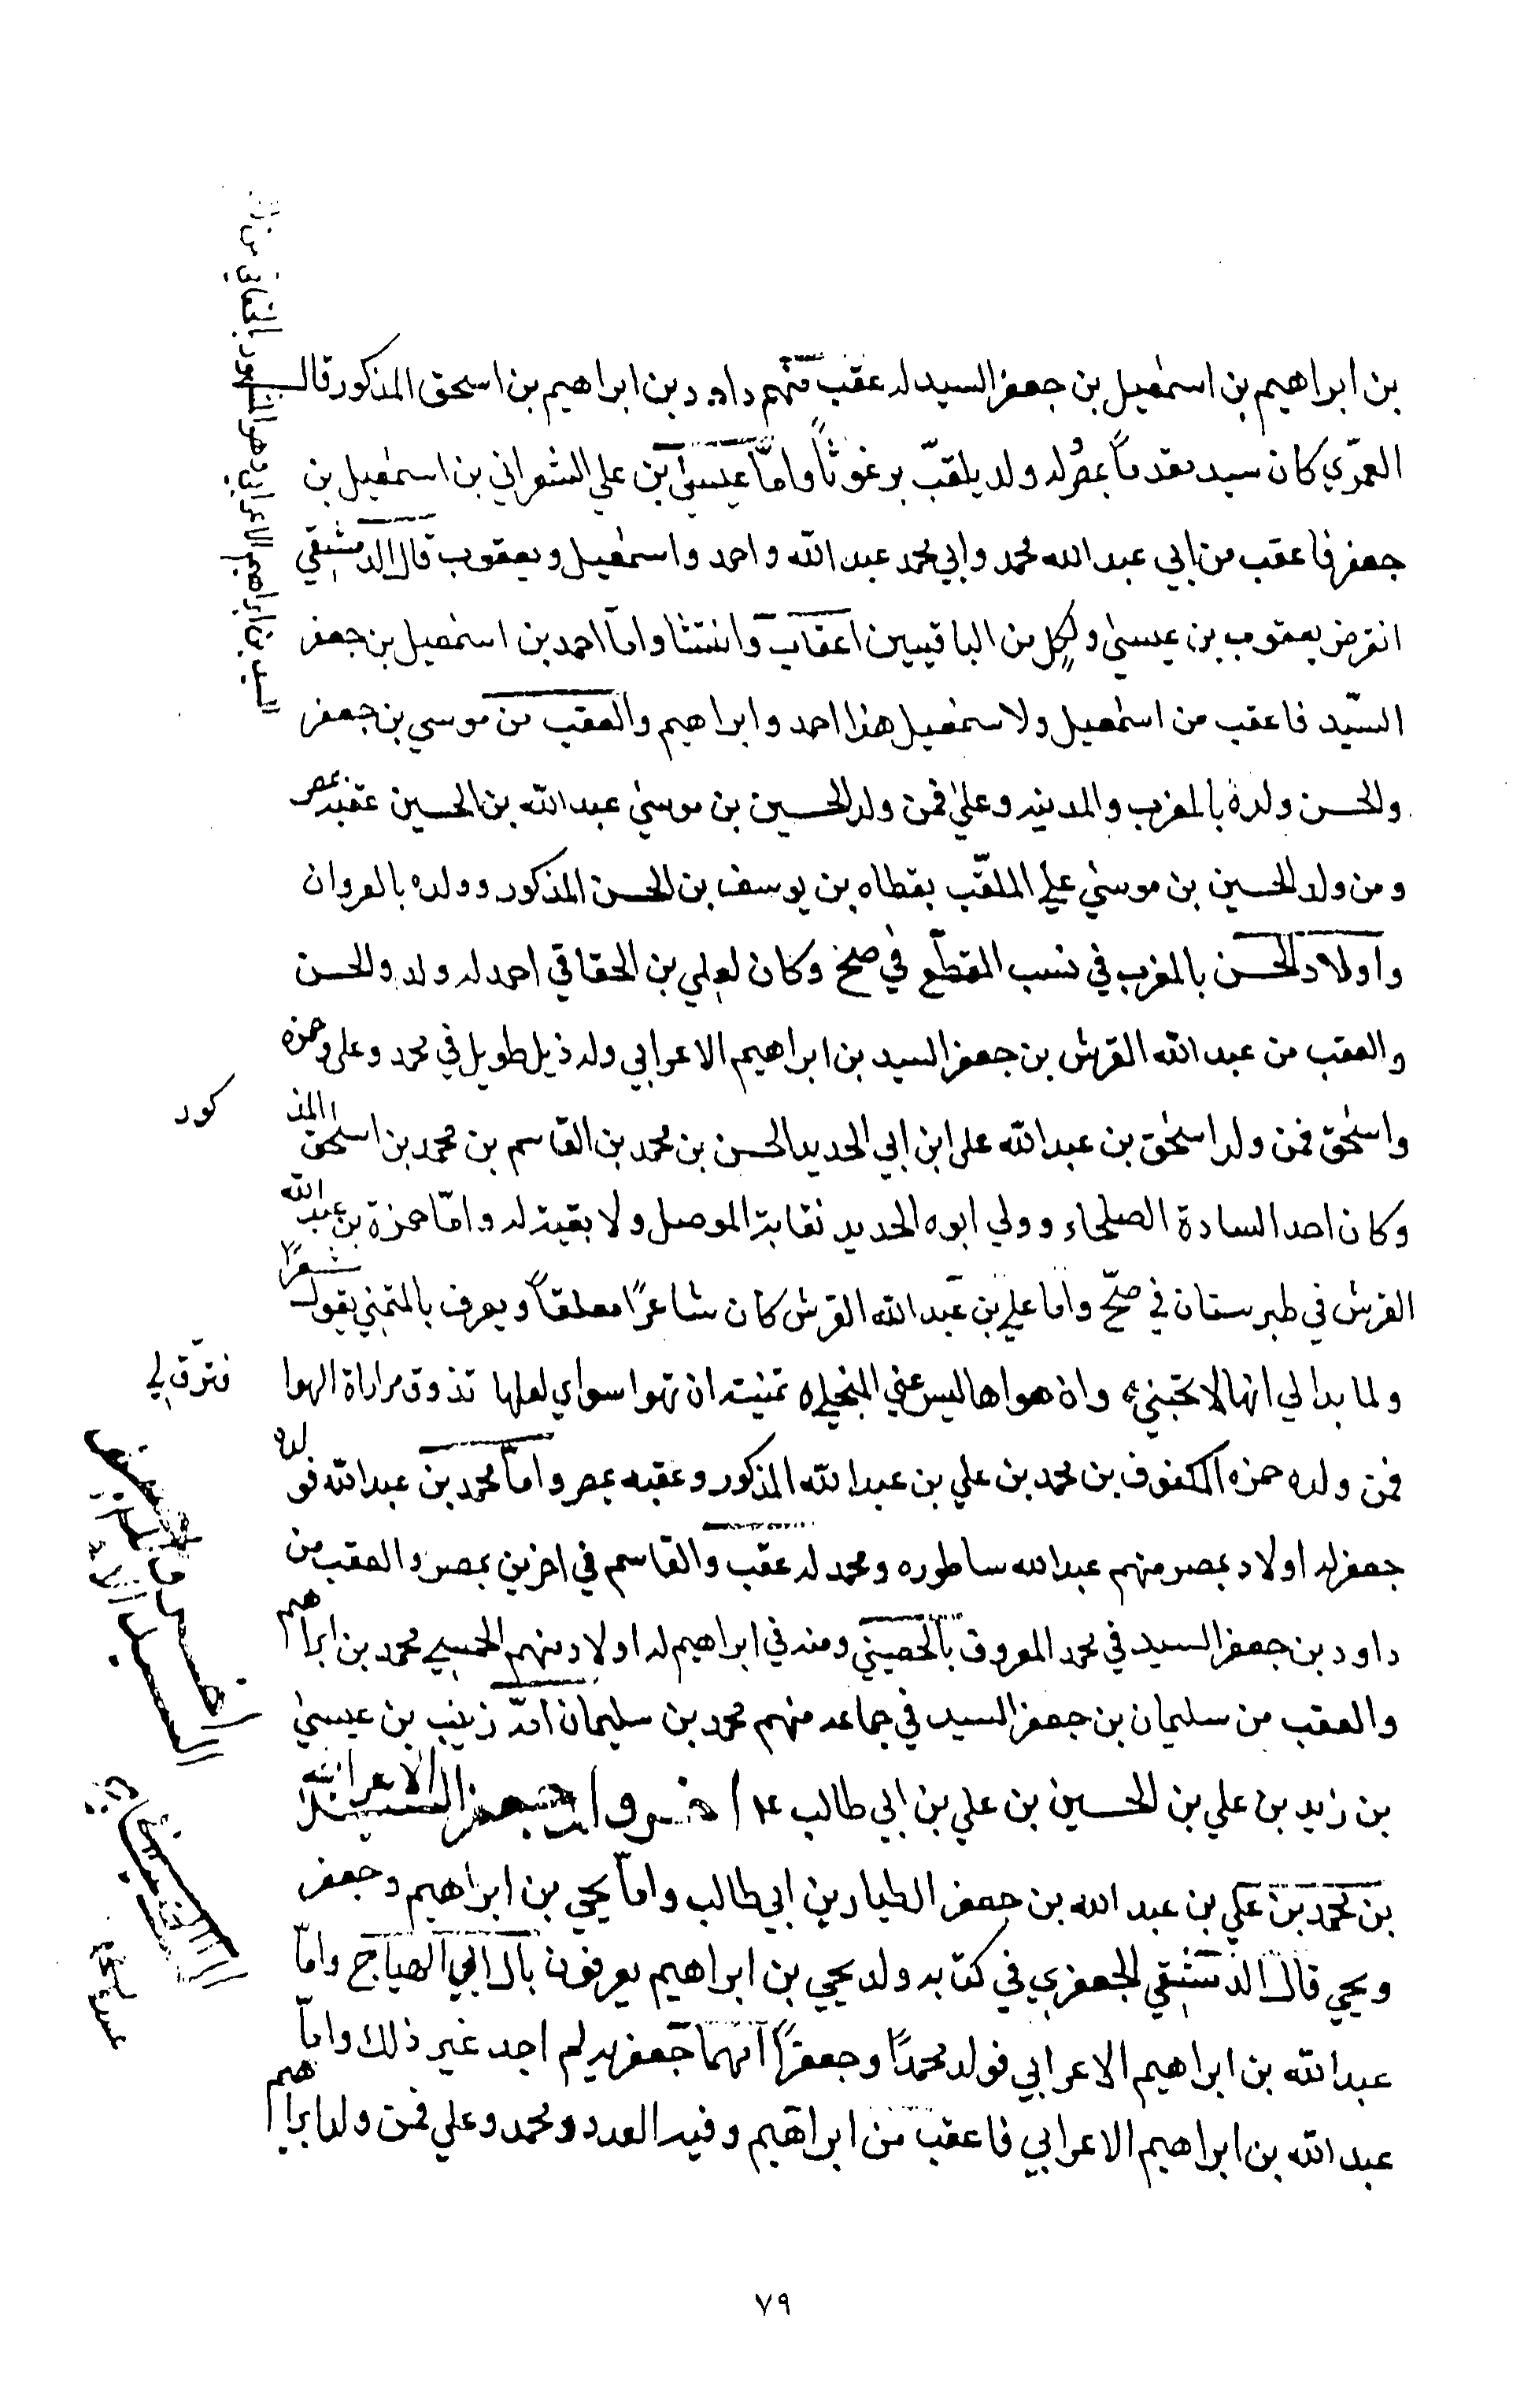 بن ابراهيم بن اسمعيل بن جعفر السيد له عقب منهم داود بن ابراهيم بن اسحق المذكور قال
العمري كان سيد مقدماً بمصر له ولد يلقب برغوثاً واما عيسى بن علي الشعراني بن اسمعيل بن
جعفر فاعقب من ابي عبد الله محمد وابي محمد عبد الله واحمد واسمعيل ويعقوب قال الدمشقي
انقرض يعقوب بن عيسى ولكل من الباقيين اعقاب وانتشا واما احمد بن اسمعيل بن جعفر
السيد فاعقب من اسمعيل ولاسمعيل هذا احمد وابراهيم والعقب من موسي بن جعفر
والحسن ولده بالمغرب والمدينه وعلي فمن ولد الحسين بن موسي عبد الله بن الحسين عقبه بمصر
ومن ولد الحسين بن موسي علي الملقب بقطاه بن يوسف بن الحسن المذكور وولده بالعروان
واولاد الحسن بالمغرب في نسب المقطع في صح وكان لعلي بن الحقاقي احمد له ولد والحسن
والعقب من عبد الله القرش بن جعفر السيد بن ابراهيم الاعرابي وله ذيل طويل في محمد وعلي وحمزه
واسحق فمن ولد اسحق بن عبد الله علي ابن ابي الحديد الحسن بن محمد بن القاسم بن محمد بن اسحق المذكور
وكان احد السادة الصلحاء وولي ابوه الحديد نقابة الموصل ولا بقية له واما حمزة بن عبد الله
القرش في طبرستان في صح واما علي بن عبد الله القرش كان شاعرًا مفلقاً ويعرف بالمتمني يقول شعرًا
ولما بدا لي انها لا تحبني وان هواها ليس عني بمنجلي تمنيت ان تهوا سواي لعلها تذوق مراراة الهوا فترق لي
فمن ولده حمزه المكفوف بن محمد بن علي بن عبد الله المذكور وعقبه بمصر واما محمد بن عبد الله فولده
جعفر له اولاد بمصر منهم عبد الله ساطوره ومحمد له عقب والقاسم في اخرين بمصر والعقب من
داود بن جعفر السيد في محمد المعروف بالحصيني ومنه في ابراهيم له اولاد منهم محمد بن ابراهيم
والعقب من سليمان بن جعفر السيد في جماعه منهم محمد بن سليمان امه زينب بن عيسي
بن زيد بن علي بن الحسين بن علي بن ابي طالب
بن محمد بن علي بن عبد الله بن جعفر الطيار بن ابي طالب واما يحيي بن ابراهيم وجعفر
ويحيي قال الدمشقي الجعفري في كتابه ولد يحيي بن ابراهيم يعرفون بال ابي الهياج واما
عبد الله بن ابراهيم الاعرابي فولد محمدًا وجعفرًا امهما جعفريه لم اجد غير ذلك واما
عبد الله بن ابراهيم الاعرابي فاعقب من ابراهيم وفيه العدد ومحمد وعلي فمن ولد ابراهيم
٧٩